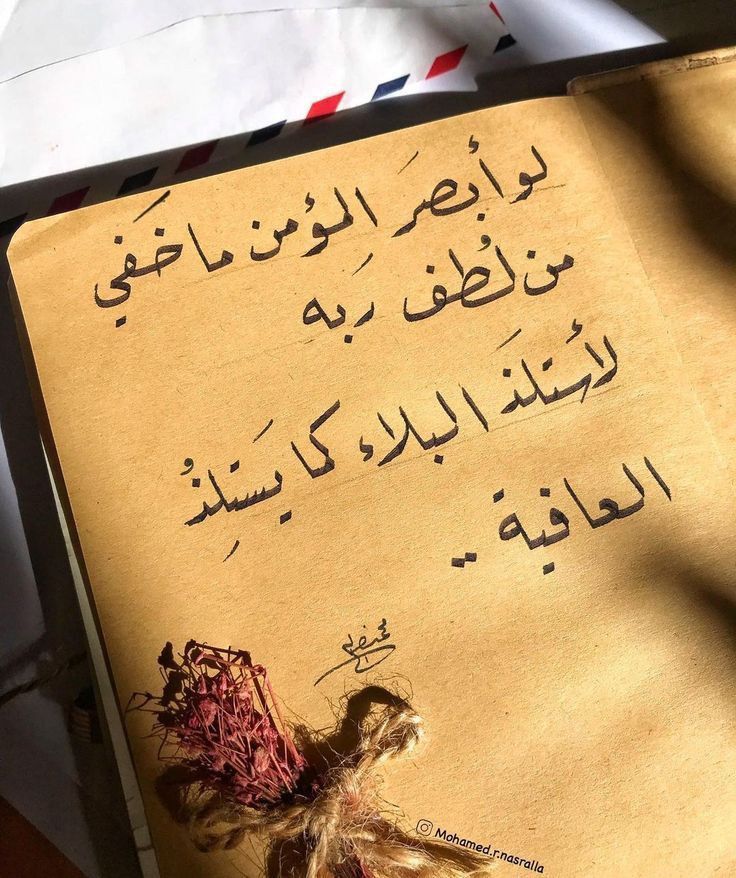 لو أبصرَ المؤمن ما خَفي
من لُطف رَبه
لأستلذَ البلاء كما يَستِلِذُ
العافية ..
Mohamed.r.nasralla